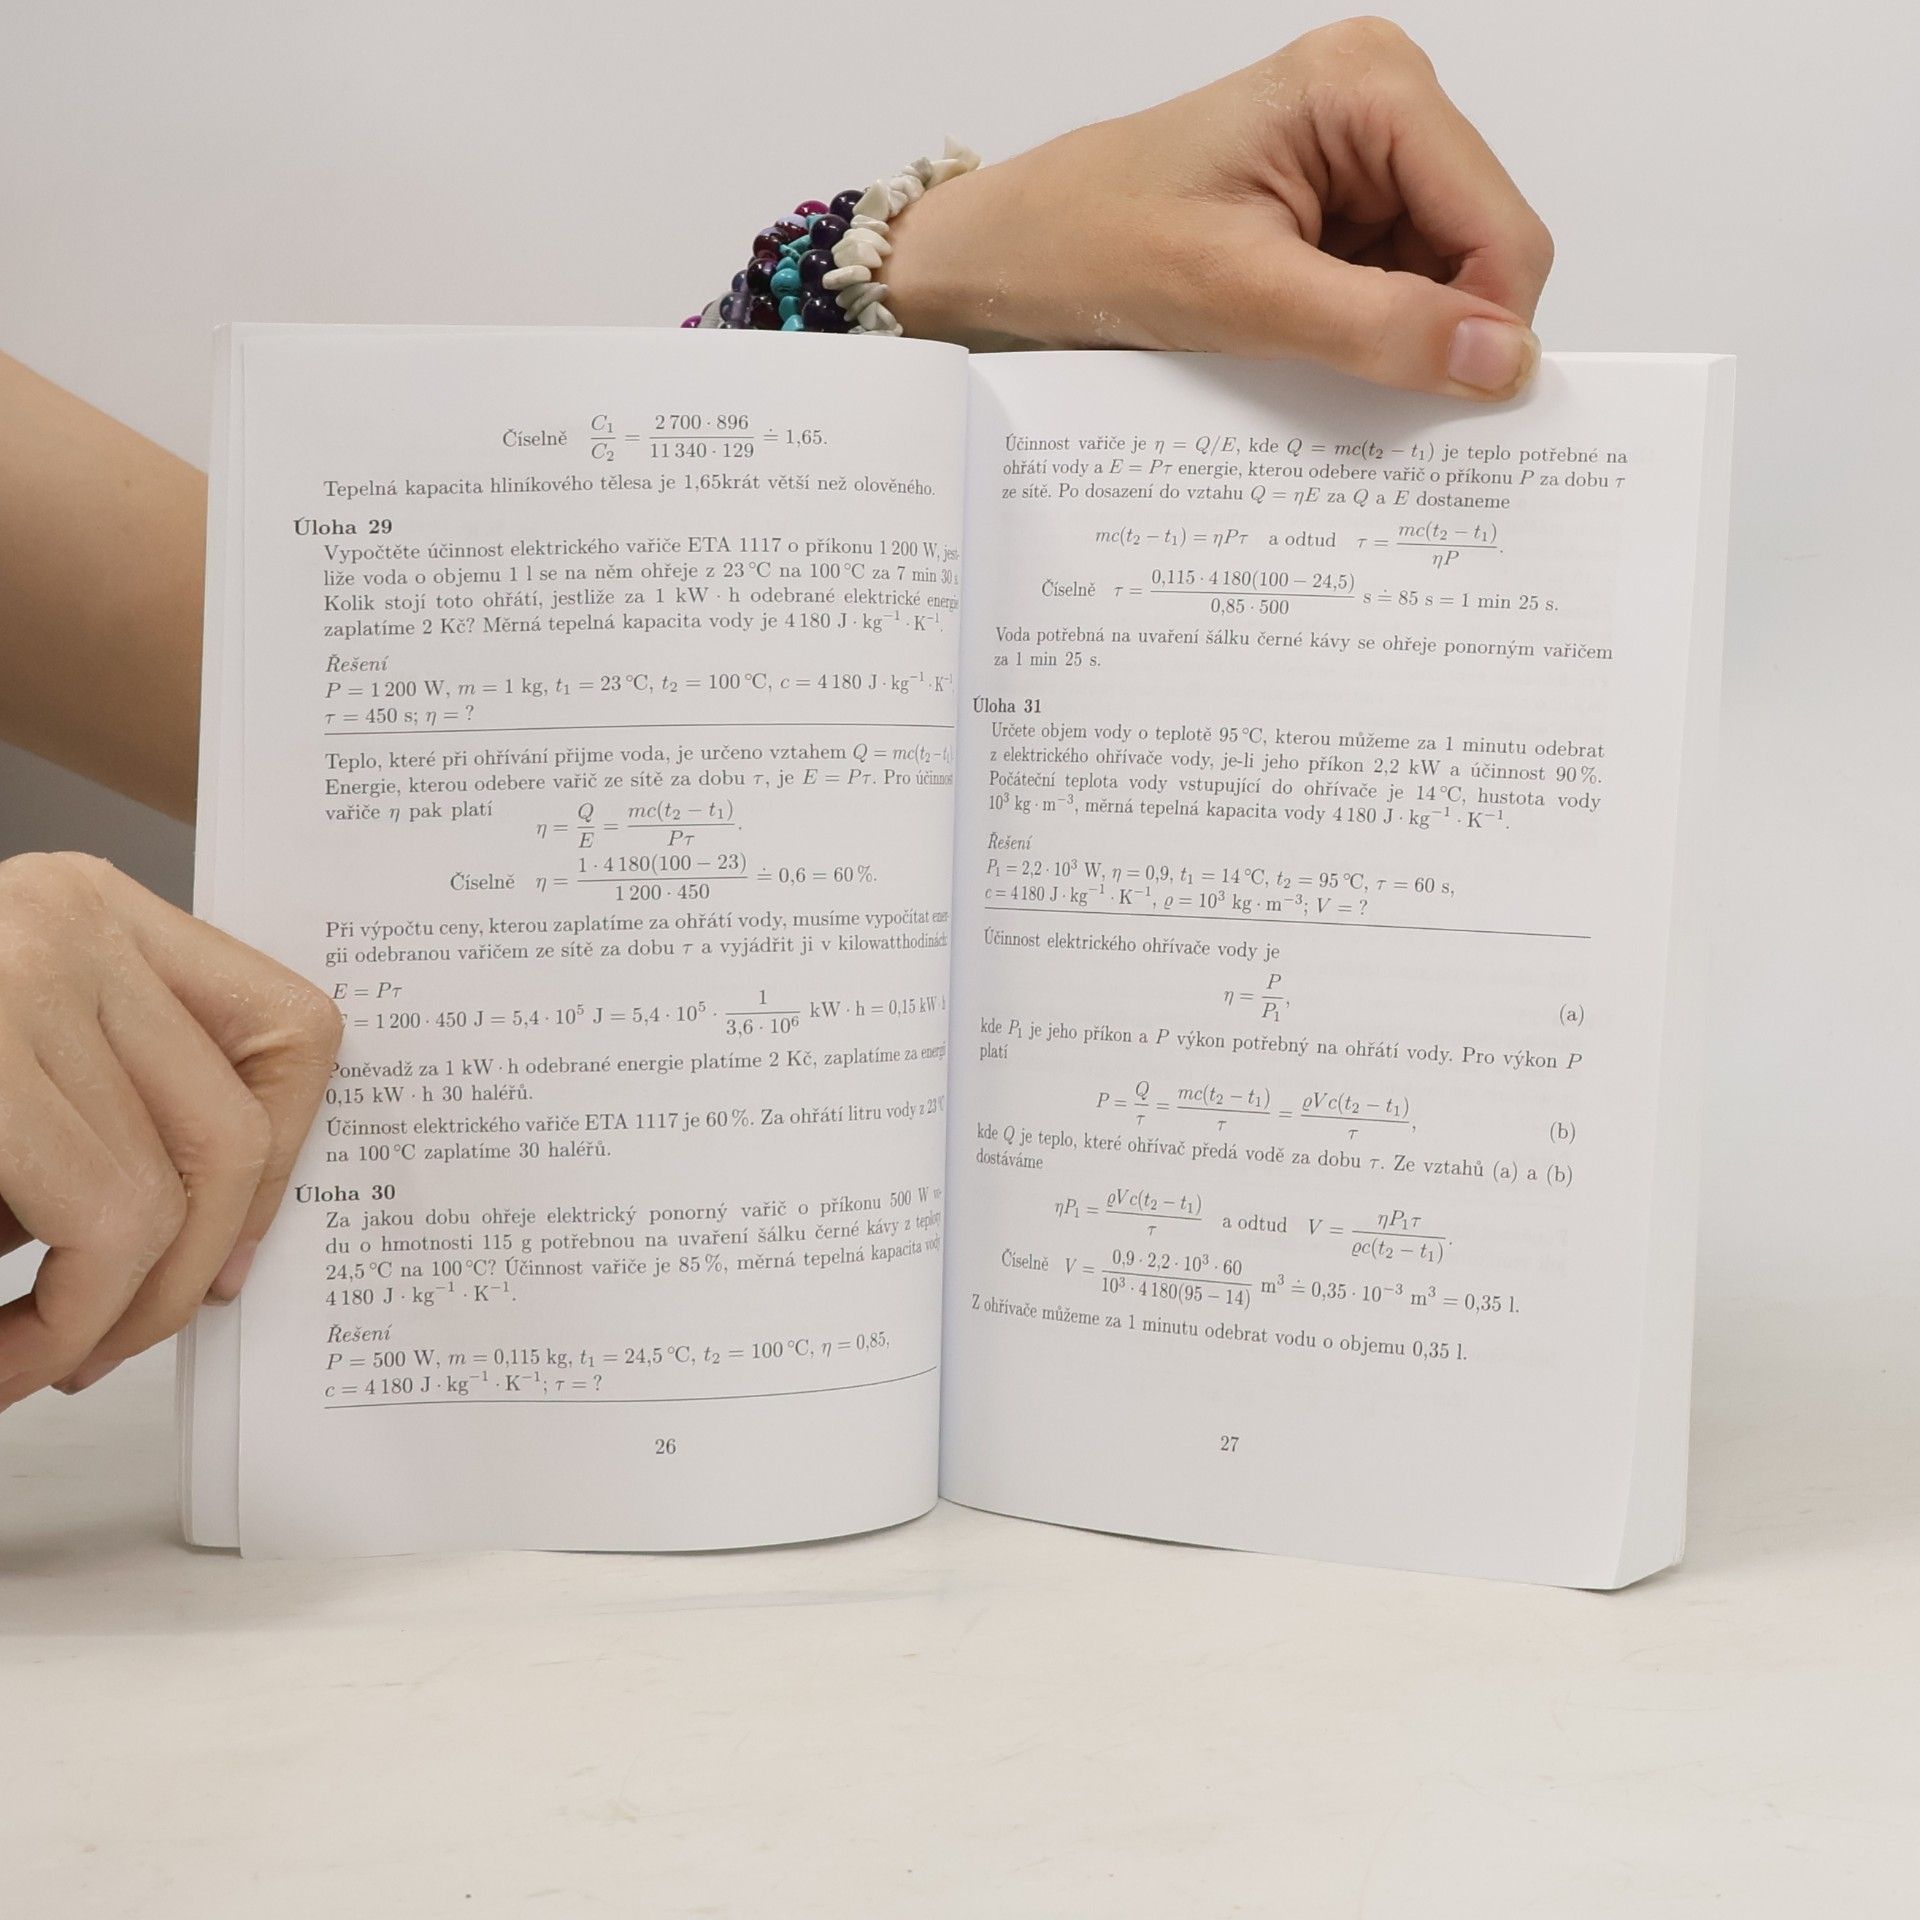 Číselně C₁/C₂ = (2 700 · 896)/(11 340 · 129) ≐ 1,65.
Tepelná kapacita hliníkového tělesa je 1,65krát větší než olověného.
Úloha 29
Vypočtěte účinnost elektrického vařiče ETA 1117 o příkonu 1 200 W, jest-
liže voda o objemu 1 l se na něm ohřeje z 23 °C na 100 °C za 7 min 30 s.
Kolik stojí toto ohřátí, jestliže za 1 kW · h odebrané elektrické energie
zaplatíme 2 Kč? Měrná tepelná kapacita vody je 4 180 J · kg⁻¹ · K⁻¹.
Řešení
P = 1 200 W, m = 1 kg, t₁ = 23 °C, t₂ = 100 °C, c = 4 180 J · kg⁻¹ · K⁻¹,
τ = 450 s; η = ?
Teplo, které při ohřívání přijme voda, je určeno vztahem Q = mc(t₂ − t₁).
Energie, kterou odebere vařič ze sítě za dobu τ, je E = Pτ. Pro účinnost
vařiče η pak platí
η = Q/E = mc(t₂ − t₁)/(Pτ).
Číselně η = (1 · 4 180(100 − 23))/(1 200 · 450) ≐ 0,6 = 60 %.
Při výpočtu ceny, kterou zaplatíme za ohřátí vody, musíme vypočítat ener-
gii odebranou vařičem ze sítě za dobu τ a vyjádřit ji v kilowatthodinách:
E = Pτ
= 1 200 · 450 J = 5,4 · 10⁵ J = 5,4 · 10⁵ · 1/(3,6 · 10⁶) kW · h = 0,15 kW · h
Poněvadž za 1 kW · h odebrané energie platíme 2 Kč, zaplatíme za energii
0,15 kW · h 30 haléřů.
Účinnost elektrického vařiče ETA 1117 je 60 %. Za ohřátí litru vody z 23 °C
na 100 °C zaplatíme 30 haléřů.
Úloha 30
Za jakou dobu ohřeje elektrický ponorný vařič o příkonu 500 W vo-
du o hmotnosti 115 g potřebnou na uvaření šálku černé kávy z teploty
24,5 °C na 100 °C? Účinnost vařiče je 85 %, měrná tepelná kapacita vody
4 180 J · kg⁻¹ · K⁻¹.
Řešení
P = 500 W, m = 0,115 kg, t₁ = 24,5 °C, t₂ = 100 °C, η = 0,85,
c = 4 180 J · kg⁻¹ · K⁻¹; τ = ?
26
Účinnost vařiče je η = Q/E, kde Q = mc(t₂ − t₁) je teplo potřebné na
ohřátí vody a E = Pτ energie, kterou odebere vařič o příkonu P za dobu τ
ze sítě. Po dosazení do vztahu Q = ηE za Q a E dostaneme
mc(t₂ − t₁) = ηPτ a odtud τ = mc(t₂ − t₁)/(ηP).
Číselně τ = (0,115 · 4 180(100 − 24,5))/(0,85 · 500) s ≐ 85 s = 1 min 25 s.
Voda potřebná na uvaření šálku černé kávy se ohřeje ponorným vařičem
za 1 min 25 s.
Úloha 31
Určete objem vody o teplotě 95 °C, kterou můžeme za 1 minutu odebrat
z elektrického ohřívače vody, je-li jeho příkon 2,2 kW a účinnost 90 %.
Počáteční teplota vody vstupující do ohřívače je 14 °C, hustota vody
10³ kg · m⁻³, měrná tepelná kapacita vody 4 180 J · kg⁻¹ · K⁻¹.
Řešení
P₁ = 2,2 · 10³ W, η = 0,9, t₁ = 14 °C, t₂ = 95 °C, τ = 60 s,
c = 4 180 J · kg⁻¹ · K⁻¹, ϱ = 10³ kg · m⁻³; V = ?
Účinnost elektrického ohřívače vody je
η = P/P₁, (a)
kde P₁ je jeho příkon a P výkon potřebný na ohřátí vody. Pro výkon P
platí
P = Q/τ = mc(t₂ − t₁)/τ = ϱVc(t₂ − t₁)/τ, (b)
kde Q je teplo, které ohřívač předá vodě za dobu τ. Ze vztahů (a) a (b)
dostáváme
ηP₁ = ϱVc(t₂ − t₁)/τ a odtud V = ηP₁τ/(ϱc(t₂ − t₁)).
Číselně V = (0,9 · 2,2 · 10³ · 60)/(10³ · 4 180(95 − 14)) m³ ≐ 0,35 · 10⁻³ m³ = 0,35 l.
Z ohřívače můžeme za 1 minutu odebrat vodu o objemu 0,35 l.
27